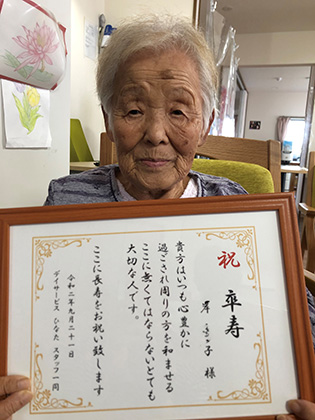 祝
卒寿
様
貴方はいつも心豊かに
過ごされ周りの方を和ませる
ここに無くてはならないとても
大切な人です。
ここに長寿をお祝い致します
令和三年九月二十一日
デイサービス ひなた スタッフ一同